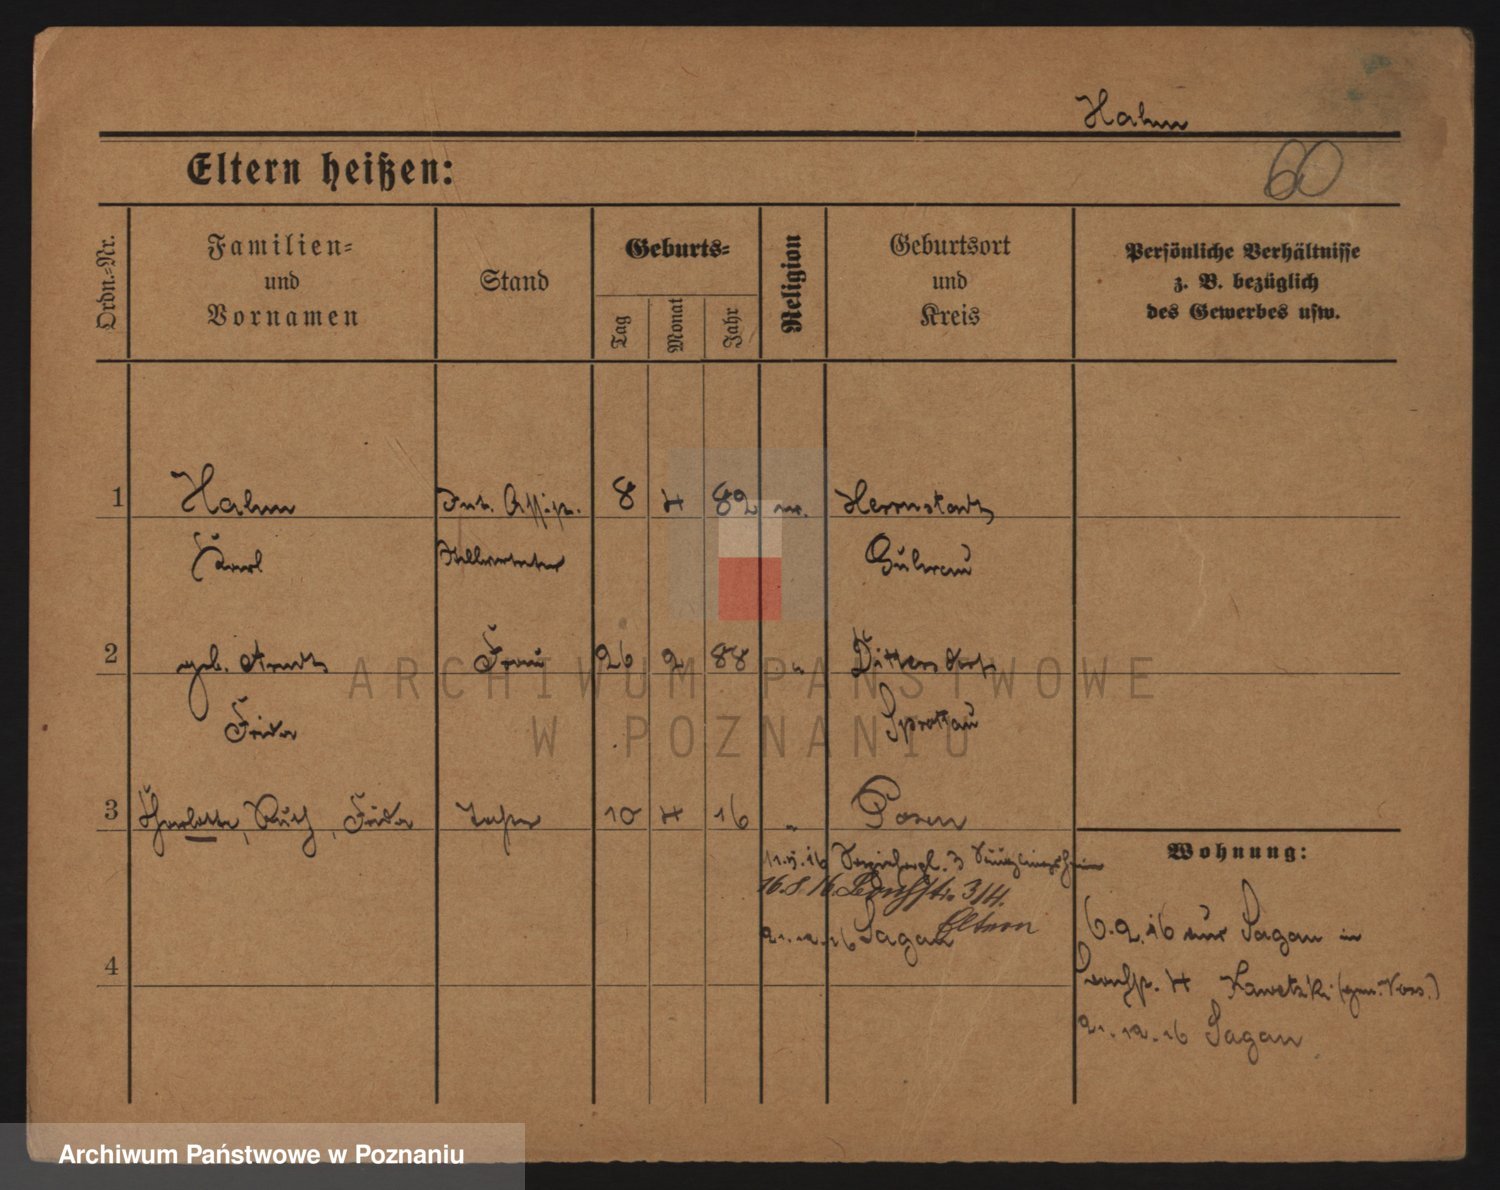 Hahn
Eltern heißen:
60
Ordn.-Nr.
Familien-
und
Vornamen
Stand
Geburts-
Tag
Monat
Jahr
Religion
Geburtsort
und
Kreis
Persönliche Verhältnisse
z. B. bezüglich
des Gewerbes usw.
1 Hahn Int. Assist. 8 4 82 ev. Herrnstadt
Karl Stellvertreter Guhrau
2 geb. Arndt Frau 26 2 88 " Dittersdorf
Frida Sprottau
3 Charlotte, Ruth, Frida Tochter 10 4 16 " Posen
Wohnung:
11.5.16 3 Säuglingsheim
16.8.16 3/4.
Eltern
21.12.16 Sagan
6.9.16 aus Sagan in
4 4 Kawetzki
21.12.16 Sagan
ARCHIWUM PAŃSTWOWE
W POZNANIU
Archiwum Państwowe w Poznaniu